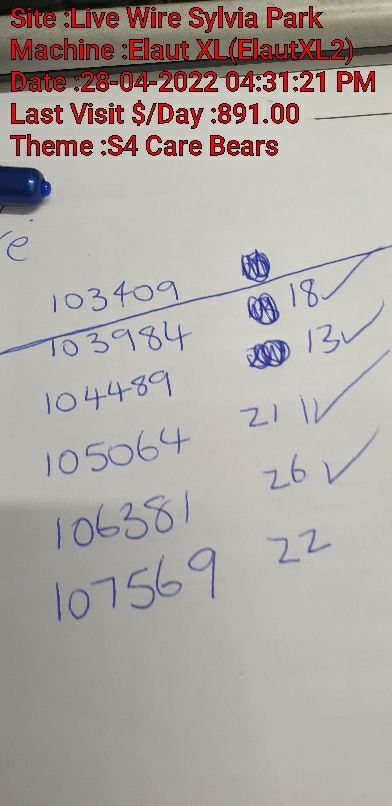 Site :Live Wire Sylvia Park
Machine :Elaut XL(ElautXL2)
Date :28-04-2022 04:31:21 PM
Last Visit $/Day :891.00
Theme :S4 Care Bears
e
103409
103984 18 ✓
104489 13 ✓
105064 21 ✓
106381 26 ✓
107569 22